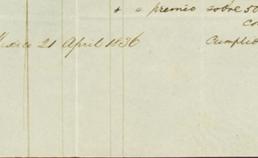 " " premio sobre 50
Co
Mexico 21 April 1836 Cumplid